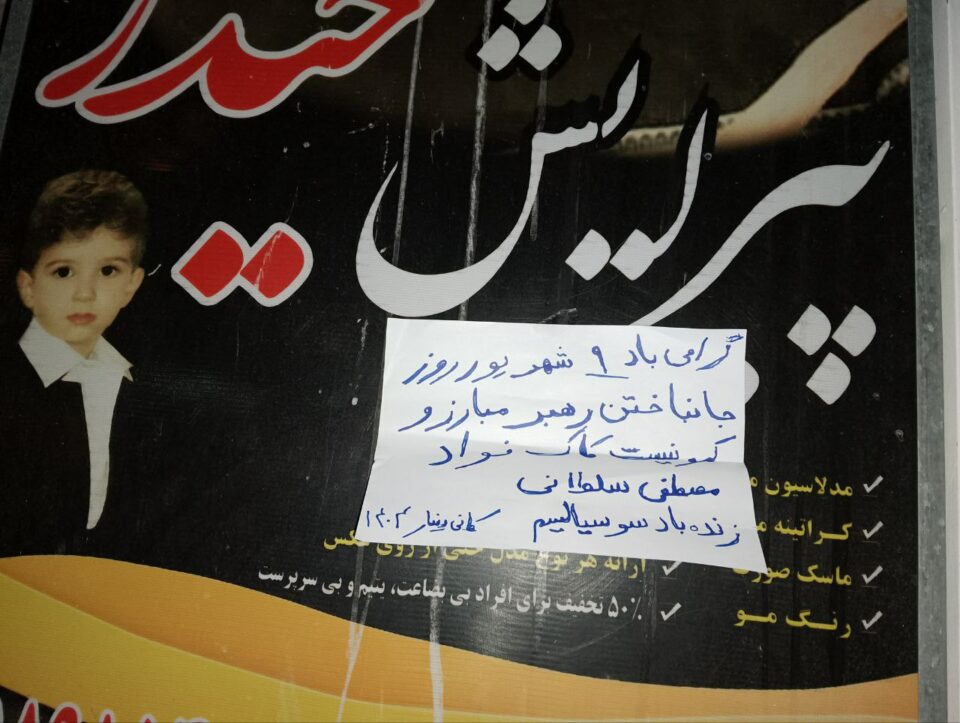 پیرایش حیدر
گرامی باد ۹ شهریور روز
جانباختن رهبر مبارز و
کمونیست کاک فواد
مصطفی سلطانی
زنده باد سوسیالیسم کانی دینار ۱۴۰۴
مدلاسیون
کراتینه
ماسک صورت
رنگ مو
ارائه هر نوع مدل حتی از روی عکس
۵۰٪ تخفیف برای افراد بی بضاعت، یتیم و بی سرپرست